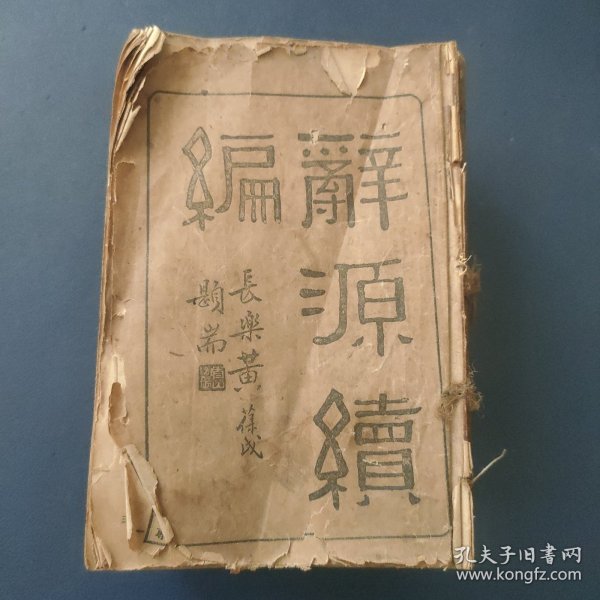 辭源續
編
長樂黃葆戉
題耑
孔夫子旧书网
www.kongfz.com